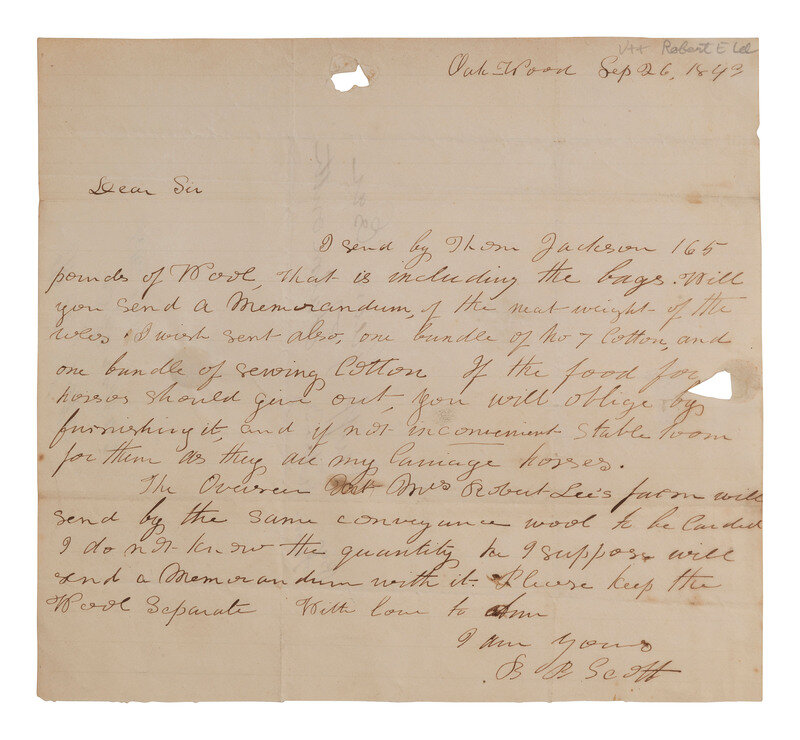 Robert E Lee
Oak Wood Sep 26, 1849
Dear Sir
I send by Thom Jackson 165
pounds of Wool, that is including the bags. Will
you send a Memorandum, of the neat weight of the
I wish sent also, one bundle of No 7 Cotton, and
one bundle of sewing Cotton If the food for
horses should give out, you will oblige by
furnishing it, and if not inconvenient stable room
for them as they are my Carriage horses.
The Overseer at Mrs Robert Lee's farm will
send by the same conveyance wool to be Carded
I do not know the quantity he I suppose will
send a Memorandum with it. Please keep the
Wool Separate With love to
I am Yours
Scott